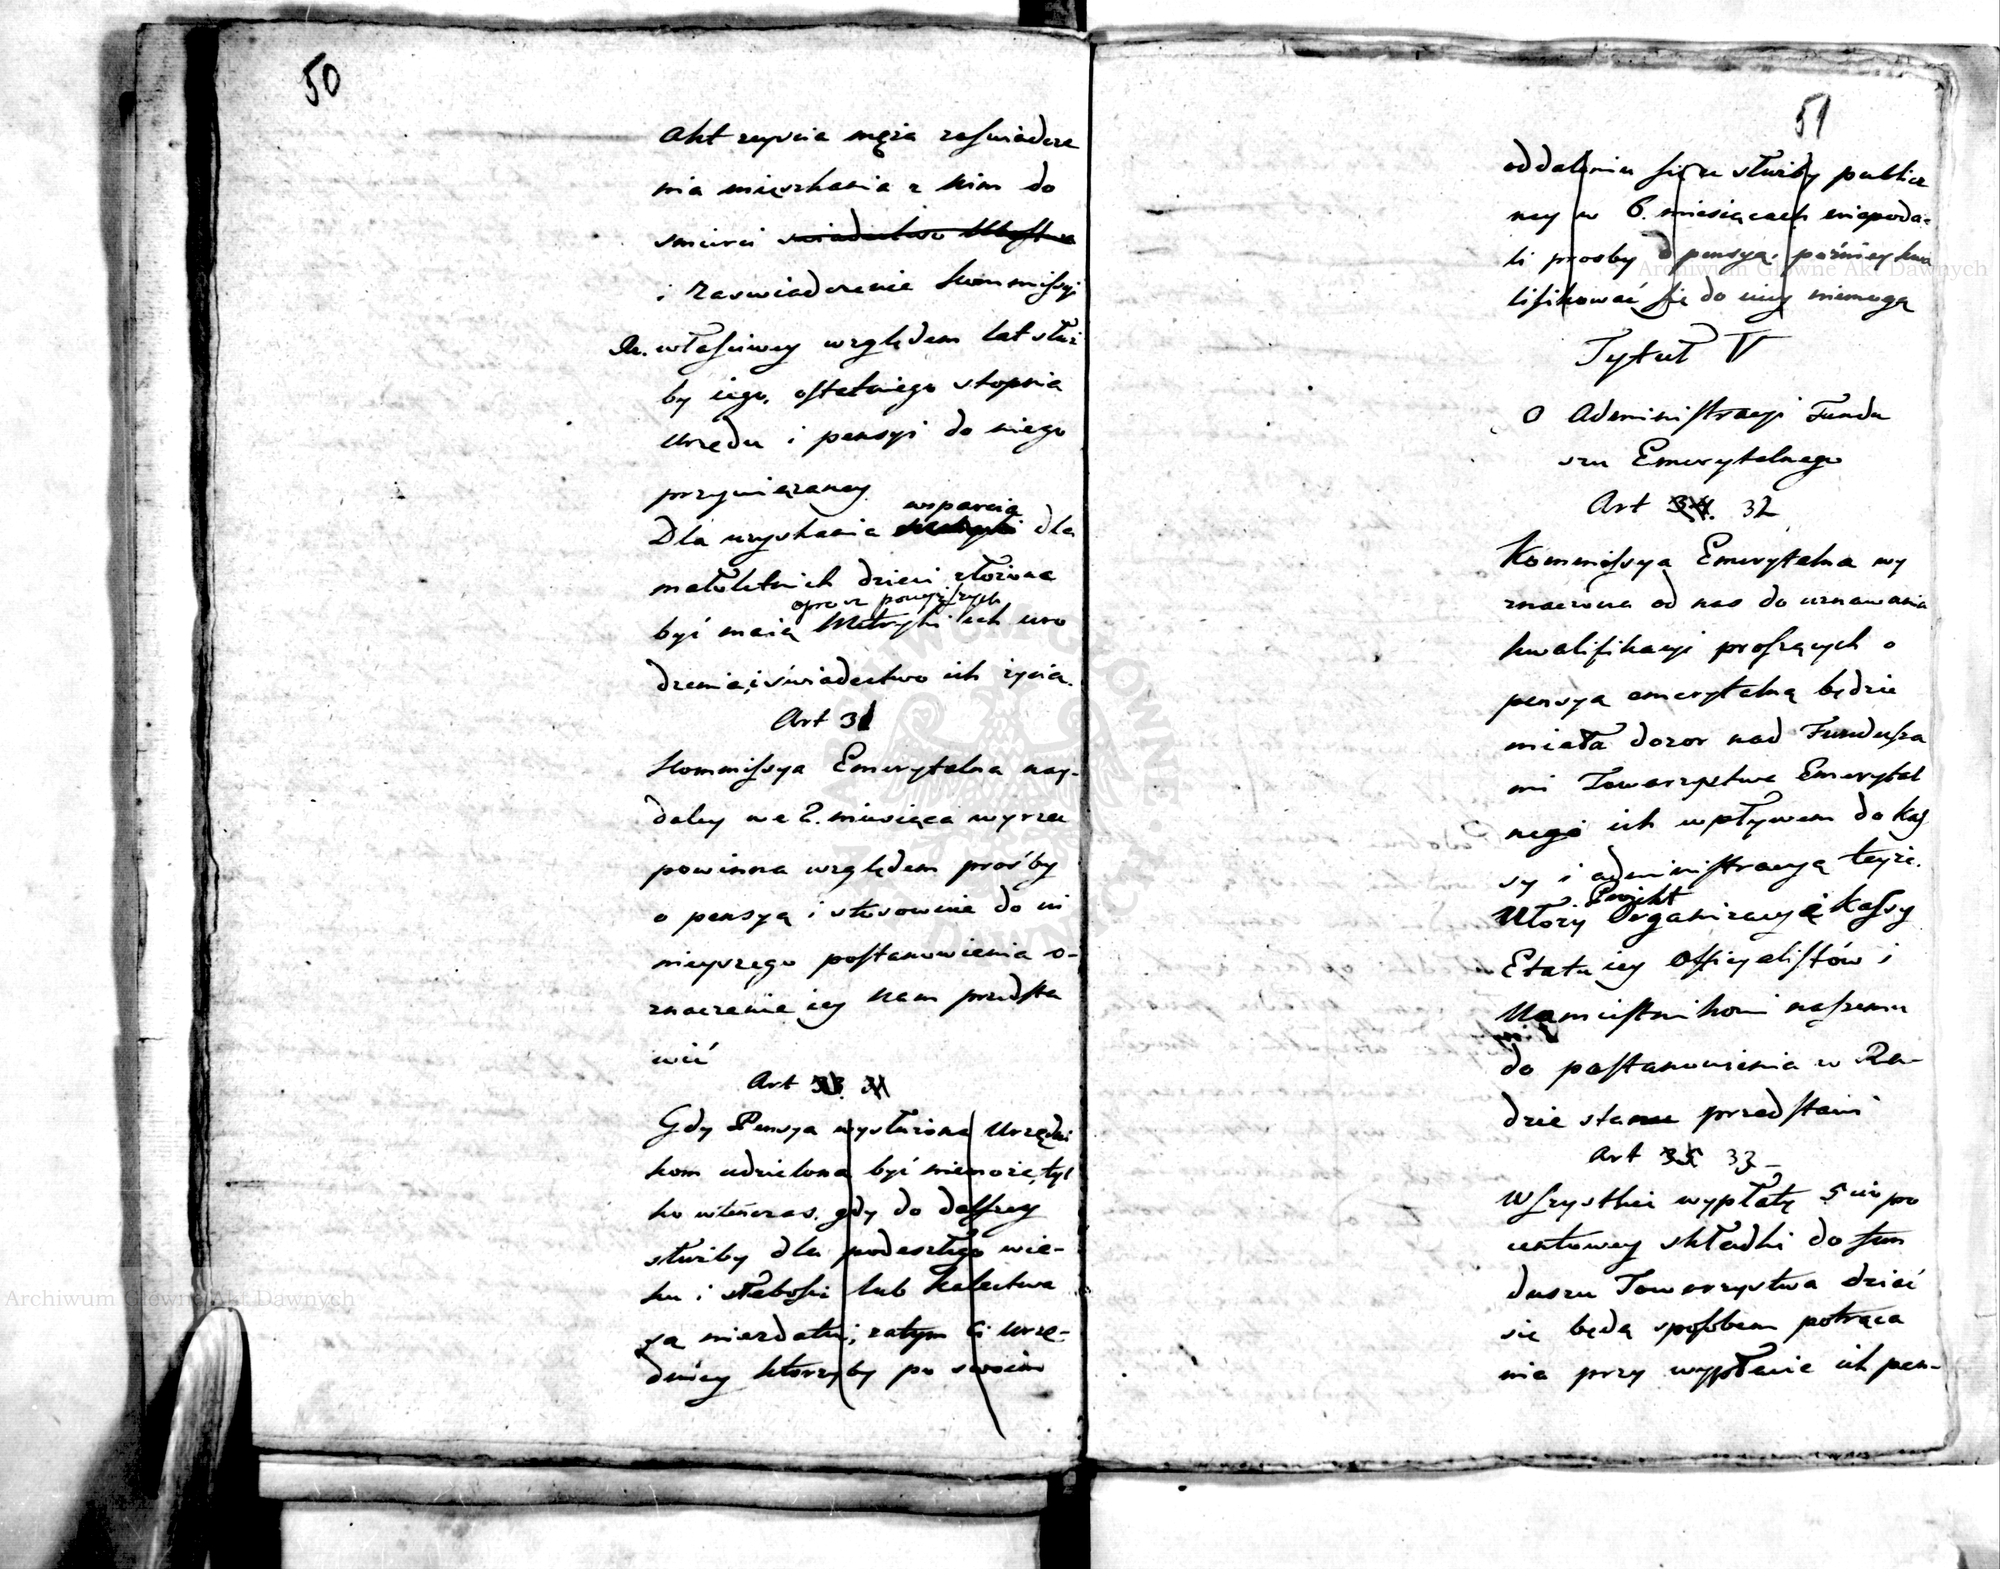 50
Akt zeyscia męża zaświadcze
nia mięszkania z nim do
smierci świadectwo Ubóstwa
i Zaswiadczenie Kommissyi
właściwey względem lat służ
by iego, ostatniego stopnia
Urzędu i pensyi do niego
przywiązaney
wsparcia
Dla uzyskania dla
małoletnich dzieci złożone
oprocz powyższych
być maią Metryki ich uro
dzenia, i świadectwo ich życia.
Art 31
Kommissya Emerytalna nay-
daley we 2. miesiąca wyrzec
powinna względem prośby
o pensyą i stosownie do ni
nieyszego postanowienia o-
znaczenie iey Nam przedsta
wić
Art 33. 31
Gdy Pensya wysłużona Urzędni
kom udzielona być niemoże, tyl
ko wtenczas, gdy do dalszey
służby dla podeszłego wie-
ku i słabości lub kalectwa
są niezdatni, zatym Ci Urzę-
dnicy którzyby po swoim
51
oddaleniu się z służby publicz
ney w 6. miesiącach niepoda-
li prosby o pensyą, pózniey kwa
lifikować się do niey niemogą
Tytuł V
O Administracyi Fundu
szu Emerytalnego
Art 34. 32
Kommissya Emerytalna wy
znaczona od nas do uznawania
kwalifikacyi proszących o
pensya emerytalną będzie
miała dozor nad Fundusza
mi Towarzystwa Emerytal
nego ich wpływem do Kas
sy i administracyą teyże.
Proiekt
Którey Organizacyi Kassy
Etatu iey Officyalistów i
Namiestnikowi naszemu
do postanowienia w Ra-
dzie stanu przedstawi
Art 35 33
Wszystkie wypłaty 5cio po
centowey składki do fun
duszu Towarzystwa dziać
się będą sposobem potrąca
nia przy wypłacie ich pen-
Archiwum Główne Akt Dawnych
Archiwum Główne Akt Dawnych